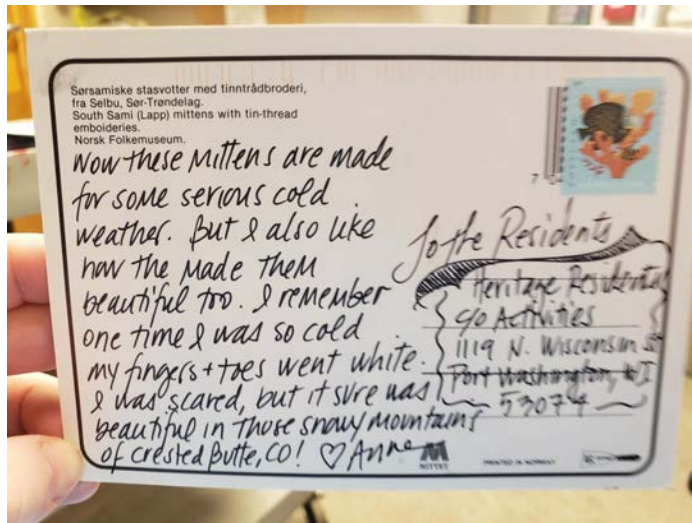 Sørsamiske stasvotter med tinntrådbroderi,
fra Selbu, Sør-Trøndelag.
South Sami (Lapp) mittens with tin-thread
emboideries.
Norsk Folkemuseum.
Wow these Mittens are made
for some serious cold
weather. But I also like
how the Made them
beautiful too. I remember
one time I was so cold
my fingers + toes went white.
I was scared, but it sure was
beautiful in those snowy mountains
of Crested Butte, CO! ♡ Anne
To the Residents
Heritage Residential
c/o Activities
1119 N. Wisconsin St
Port Washington, WI
53074
MITTET
PRINTED IN NORWAY